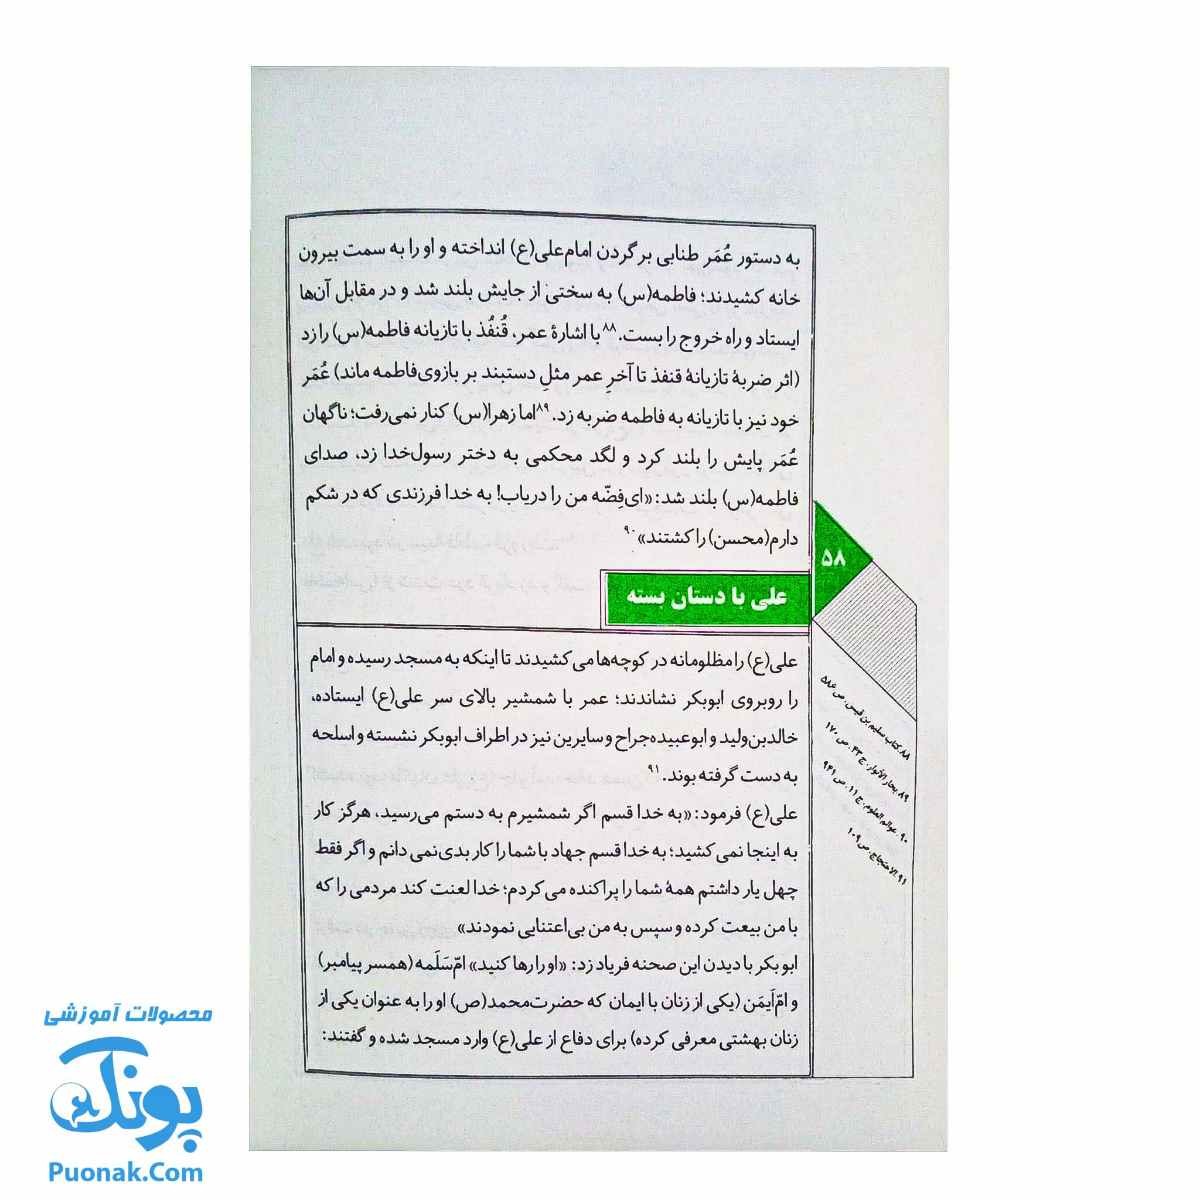 به دستور عُمَر طنابی بر گردن امام‌علی(ع) انداخته و او را به سمت بیرون
خانه کشیدند؛ فاطمه(س) به سختی از جایش بلند شد و در مقابل آن‌ها
ایستاد و راه خروج را بست.۸۸ با اشارهٔ عمر، قُنفُذ با تازیانه فاطمه(س) را زد
(اثر ضربهٔ تازیانهٔ قنفذ تا آخرِ عمر مثلِ دستبند بر بازوی‌فاطمه ماند) عُمَر
خود نیز با تازیانه به فاطمه ضربه زد.۸۹اما زهرا(س) کنار نمی‌رفت؛ ناگهان
عُمَر پایش را بلند کرد و لگد محکمی به دختر رسول‌خدا زد، صدای
فاطمه(س) بلند شد: «ای‌فِضّه من را دریاب! به خدا فرزندی که در شکم
دارم(محسن) را کشتند»۹۰
۵۸
علی با دستان بسته
علی(ع) را مظلومانه در کوچه‌ها می‌کشیدند تا اینکه به مسجد رسیده و امام
را روبروی ابوبکر نشاندند؛ عمر با شمشیر بالای سر علی(ع) ایستاده،
خالدبن‌ولید و ابوعبیده‌جراح و سایرین نیز در اطراف ابوبکر نشسته و اسلحه
به دست گرفته بوند.۹۱
علی(ع) فرمود: «به خدا قسم اگر شمشیرم به دستم می‌رسید، هرگز کار
به اینجا نمی‌کشید؛ به خدا قسم جهاد با شما را کار بدی‌نمی دانم و اگر فقط
چهل یار داشتم همهٔ شما را پراکنده می‌کردم؛ خدا لعنت کند مردمی را که
با من بیعت کرده و سپس به من بی‌اعتنایی نمودند»
ابوبکر با دیدن این صحنه فریاد زد: «او را رها کنید» امّ‌سَلَمه (همسر پیامبر)
و امّ‌اَیمَن (یکی از زنان با ایمان که حضرت‌محمد(ص) او را به عنوان یکی از
زنان بهشتی معرفی کرده) برای دفاع از علی(ع) وارد مسجد شده و گفتند:
۸۸. کتاب سلیم بن قیس، ص ۵۸۶
۸۹. بحار الأنوار، ج ۴۳، ص ۱۷۰
۹۰. عوالم العلوم، ج ۱۱، ص ۹۴۱
۹۱. الاحتجاج، ص ۱۰۹
محصولات آموزشی
پونک
Puonak.Com